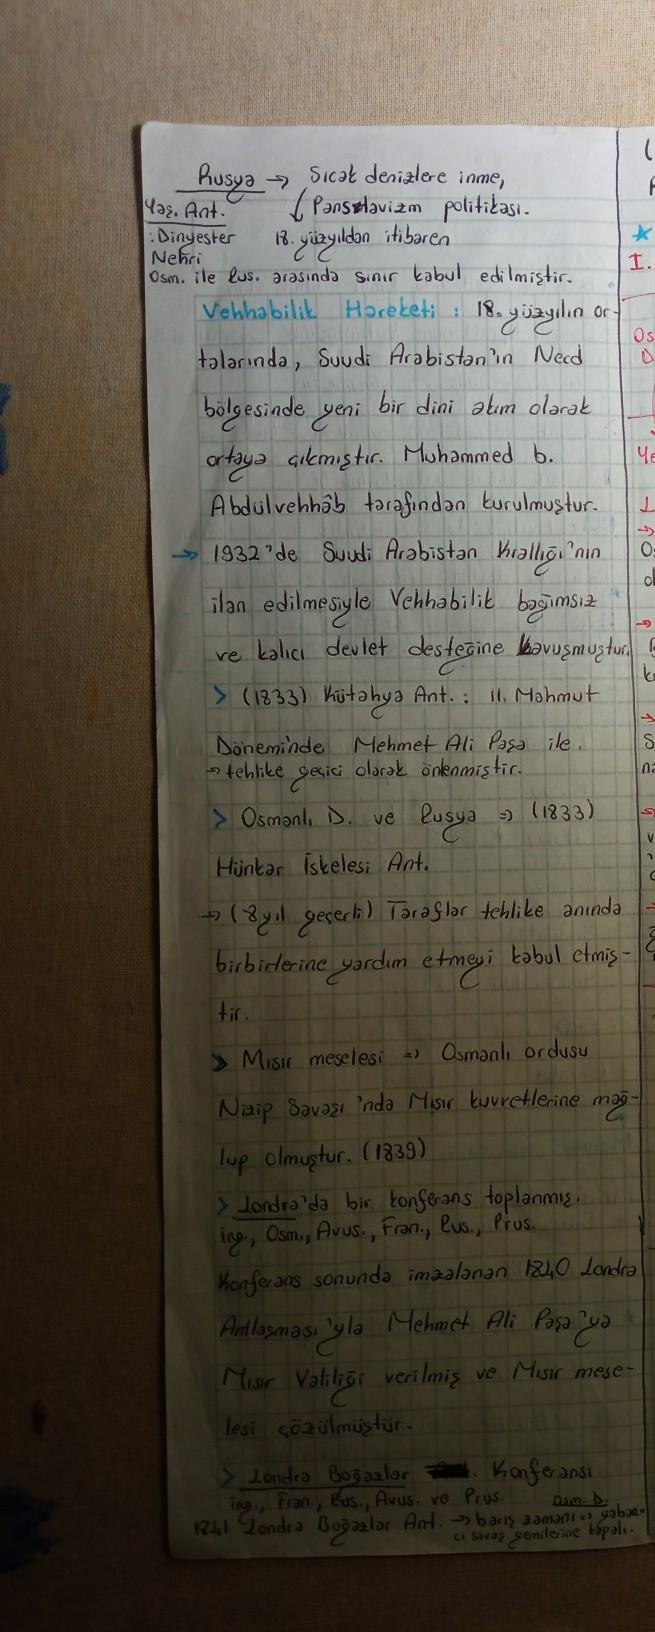 Rusya → Sıcak denizlere inme,
↓ Panslavizm politikası.
Yaş. Ant.
: Dinyester 18. yüzyıldan itibaren
Nehri
Osm. ile Rus. arasında sınır kabul edilmiştir.
Vehhabilik Hareketi : 18. yüzyılın or-
talarında, Suudi Arabistan'ın Necd
bölgesinde yeni bir dini akım olarak
ortaya çıkmıştır. Muhammed b.
Abdülvehhâb tarafından kurulmuştur.
→ 1932'de Suudi Arabistan Krallığı'nın
ilan edilmesiyle Vehhabilik bağımsız
ve kalıcı devlet desteğine kavuşmuştur.
> (1833) Kütahya Ant. : II. Mahmut
Döneminde Mehmet Ali Paşa ile.
→ tehlike geçici olarak önlenmiştir.
> Osmanlı D. ve Rusya => (1833)
Hünkar İskelesi Ant.
→ (8 yıl geçerli) Taraflar tehlike anında
birbirlerine yardım etmeyi kabul etmiş-
tir.
> Mısır meselesi => Osmanlı ordusu
Nizip Savaşı'nda Mısır kuvvetlerine mağ-
lup olmuştur. (1839)
> Londra'da bir konferans toplanmış.
ing., Osm., Avus., Fran., Rus., Prus.
Konferans sonunda imzalanan 1840 Londra
Antlaşması'yla Mehmet Ali Paşa'ya
Mısır Valiliği verilmiş ve Mısır mese-
lesi çözülmüştür.
> Londra Boğazlar Konferansı
ing., Fran., Rus., Avus. ve Prus. Osm. D.
1841 Londra Boğazlar Ant. → barış zamanı => yaban-
cı savaş gemilerine kapalı.